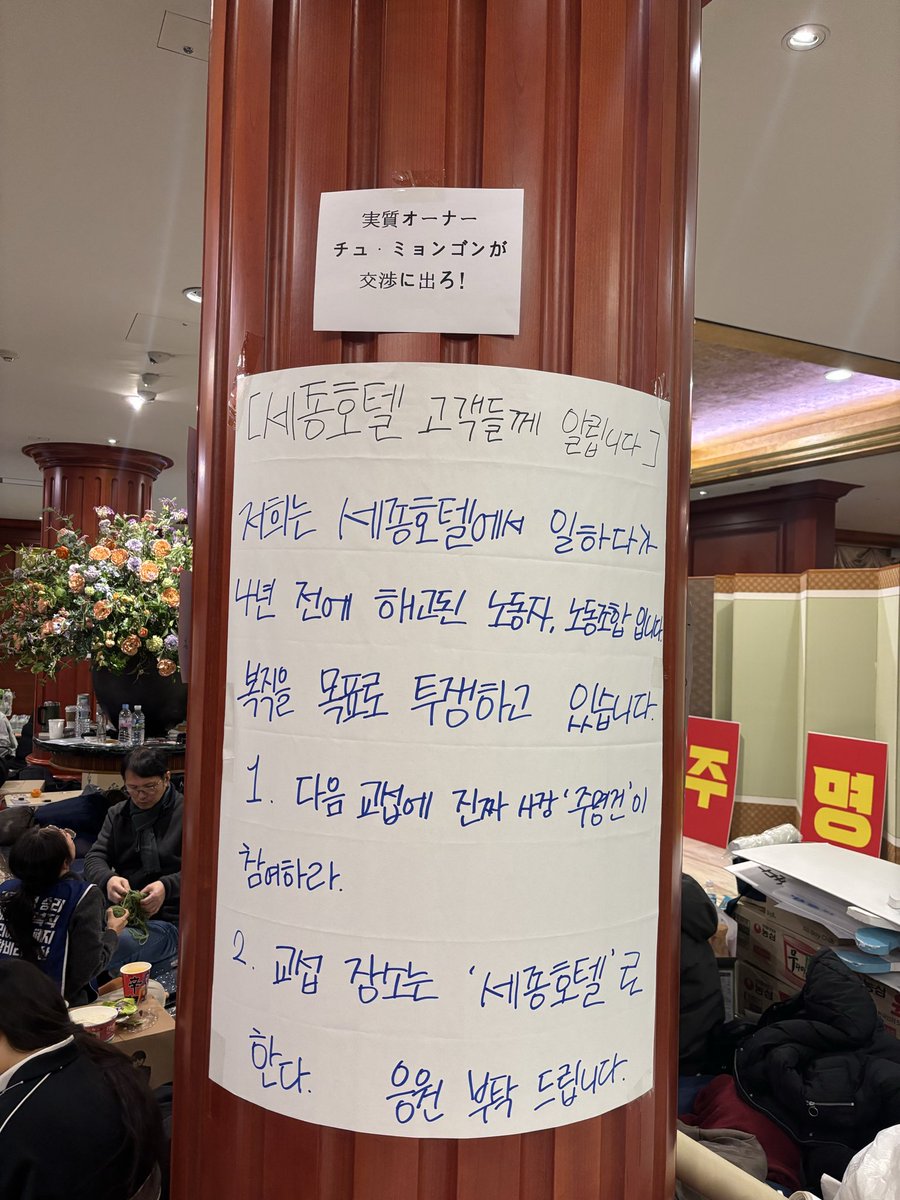 実質オーナー
チュ・ミョンゴンが
交渉に出ろ!
[세종호텔 고객들께 알립니다]
저희는 세종호텔에서 일하다가
4년 전에 해고된 노동자, 노동조합 입니다
복직을 목표로 투쟁하고 있습니다.
1. 다음 교섭에 진짜 사장 '주명건'이
참여하라.
2. 교섭 장소는 '세종호텔'로
한다. 응원 부탁 드립니다.
주
명
농심
辛